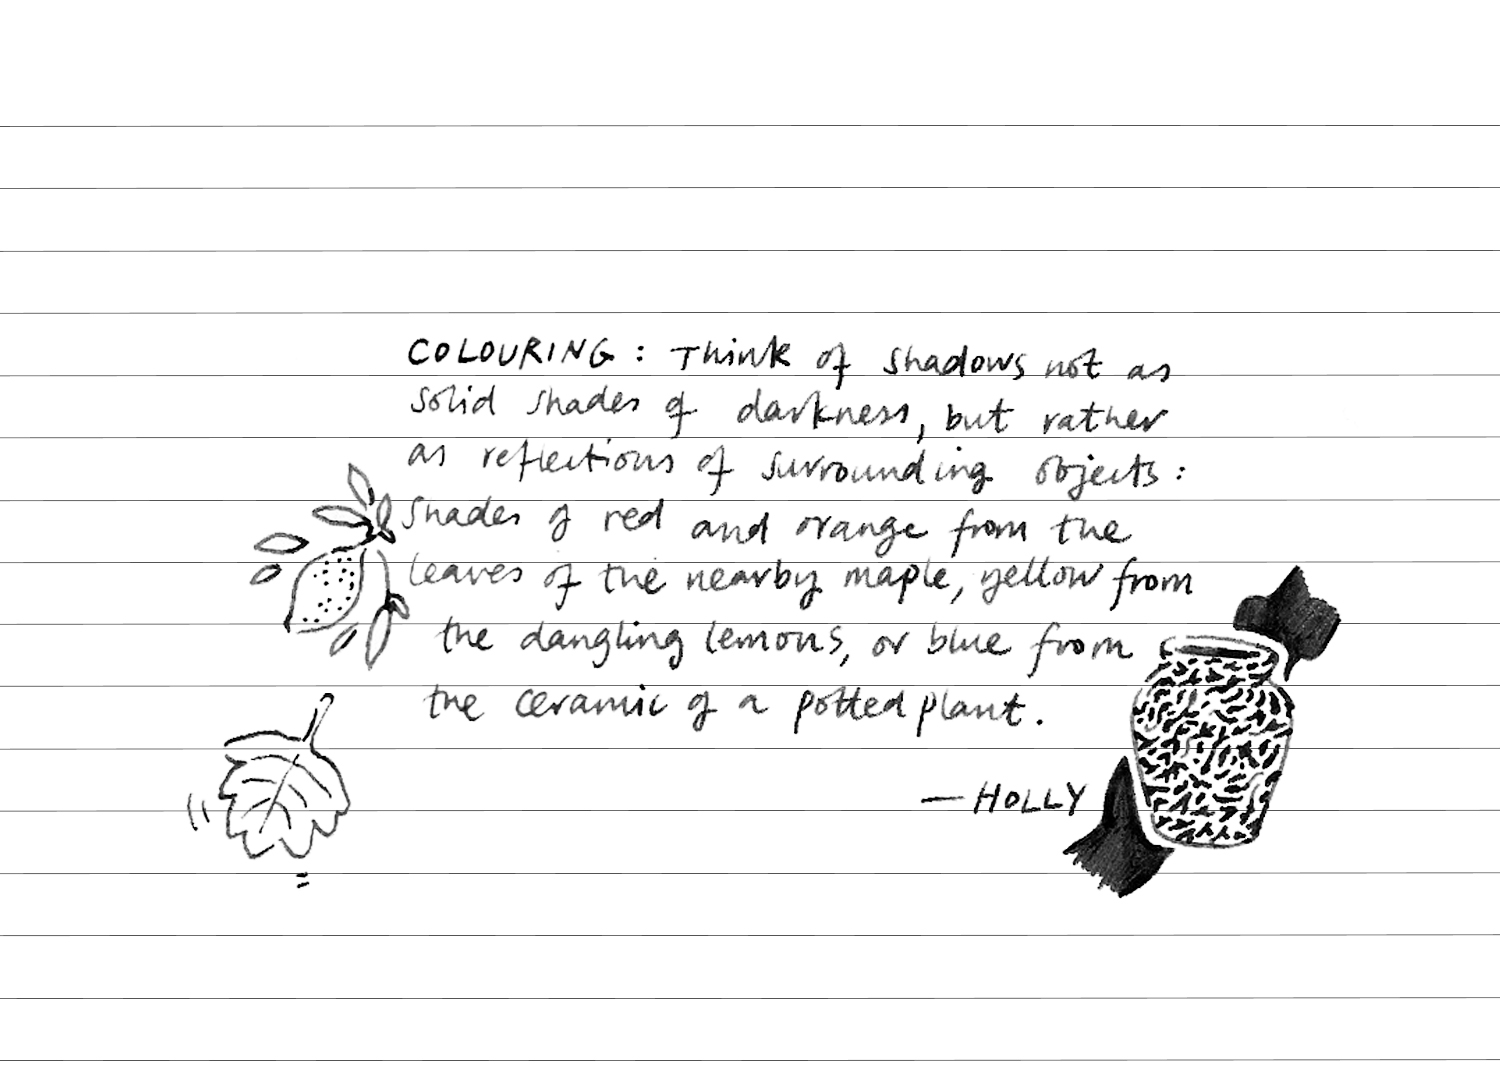 COLOURING : Think of shadows not as
solid shades of darkness, but rather
as reflections of surrounding objects :
shades of red and orange from the
leaves of the nearby maple, yellow from
the dangling lemons, or blue from
the ceramic of a potted plant.
— HOLLY